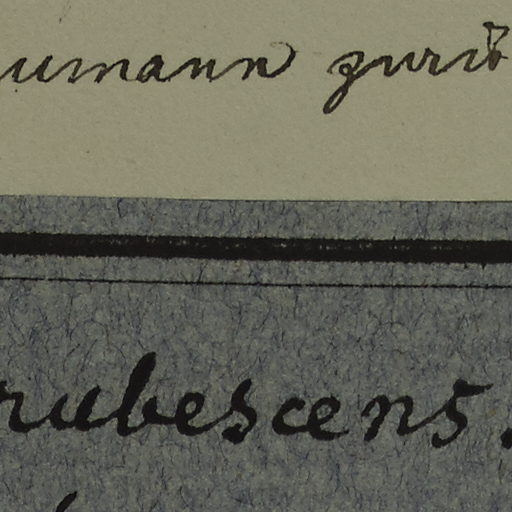 umann zurü
rubescens.